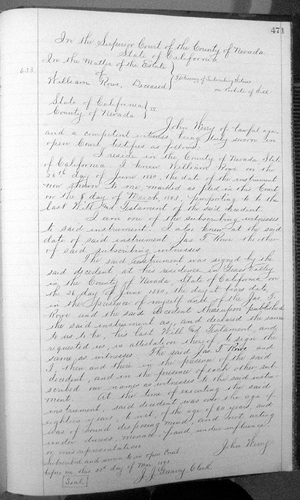 471
In the Superior Court of the County of Nevada
State of California
In the Matter of the Estate
of
William Rowe, Deceased
Testimony of Subscribing Witness
on Probate of Will
State of California
County of Nevada
ss
John Wing of lawful age
and a competent witness, being duly sworn in
open Court, testifies as follows
I reside in the County of Nevada State
of California. I knew William Rowe on the
day of June the date of the instrument
now shown to me, marked as filed in this Court
on the day of March purporting to be the
last Will and Testament of the said decedent
I am one of the subscribing witnesses
to said instrument. I also knew at the said
date of said instrument Jas J. Rowe the other
of said subscribing witnesses
The said instrument was signed by the
said decedent at his residence in Grass Valley
in the County of Nevada State of California on
the day of June the day it bears date
in the presence of myself and of the Jas J.
Rowe and the said decedent thereupon published
the said instrument as, and declared the same
to us to be, his last Will and Testament, and
requested us, in attestation thereof to sign the
same as witnesses. The said Jas J. Rowe and
I, then and there in the presence of the said
decedent, and in the presence of each other sub
scribed our names as witnesses to the said instru
ment. At the time of executing the said
instrument, said decedent was over the age of
eighteen years, to wit, of the age of 60 years, and
was of sound disposing mind, and not acting
under duress, menace, fraud, undue influence
or misrepresentation
John Wing
Subscribed and sworn to in open Court
before me this day of
Clerk
Seal